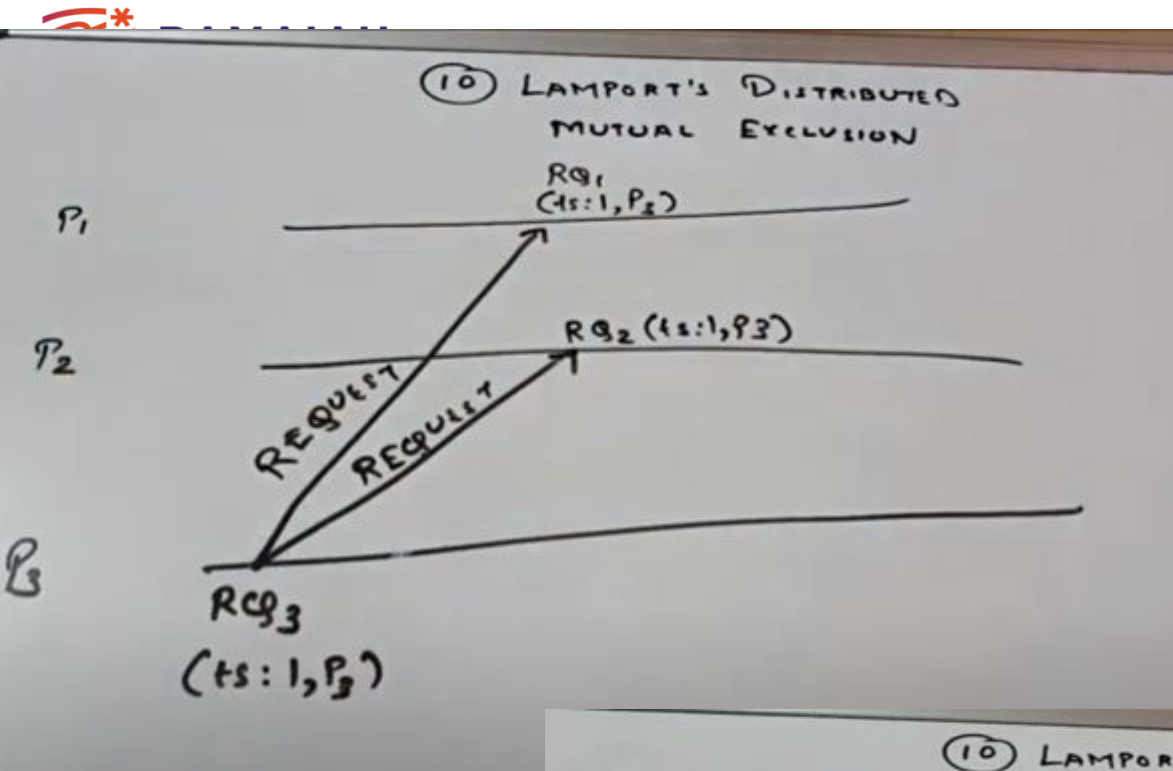 10 LAMPORT'S DISTRIBUTED
MUTUAL EXCLUSION
RQ1
(ts:1, P3)
P1
RQ2 (ts:1, P3)
P2
REQUEST
REQUEST
P3
RQ3
(ts: 1, P3)
10 LAMPOR